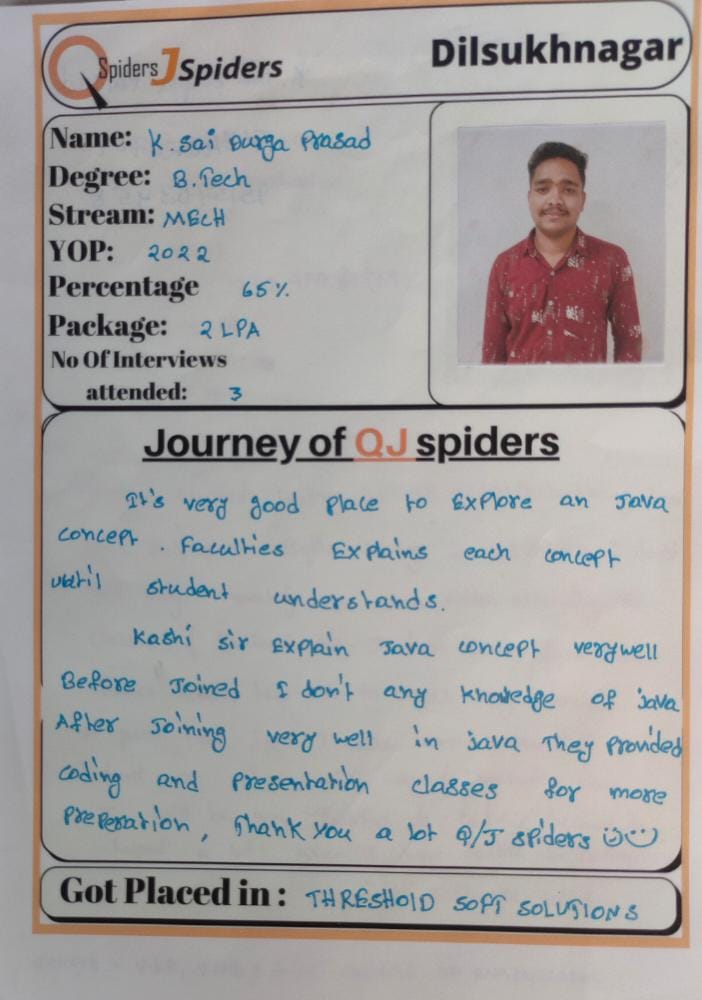 QSpiders JSpiders
Dilsukhnagar
Name: K. Sai Durga Prasad
Degree: B.Tech
Stream: MECH
YOP: 2022
Percentage 65%
Package: 2 LPA
No Of Interviews
attended: 3
Journey of QJ spiders
It's very good place to Explore an Java
concept. Faculties Explains each concept
until student understands.
Kashi sir Explain Java concept verywell
Before Joined I don't any knowledge of java
After Joining very well in java They provided
coding and presentation classes for more
preperation, Thank you a lot Q/J spiders
Got Placed in : THRESHOLD SOFT SOLUTIONS